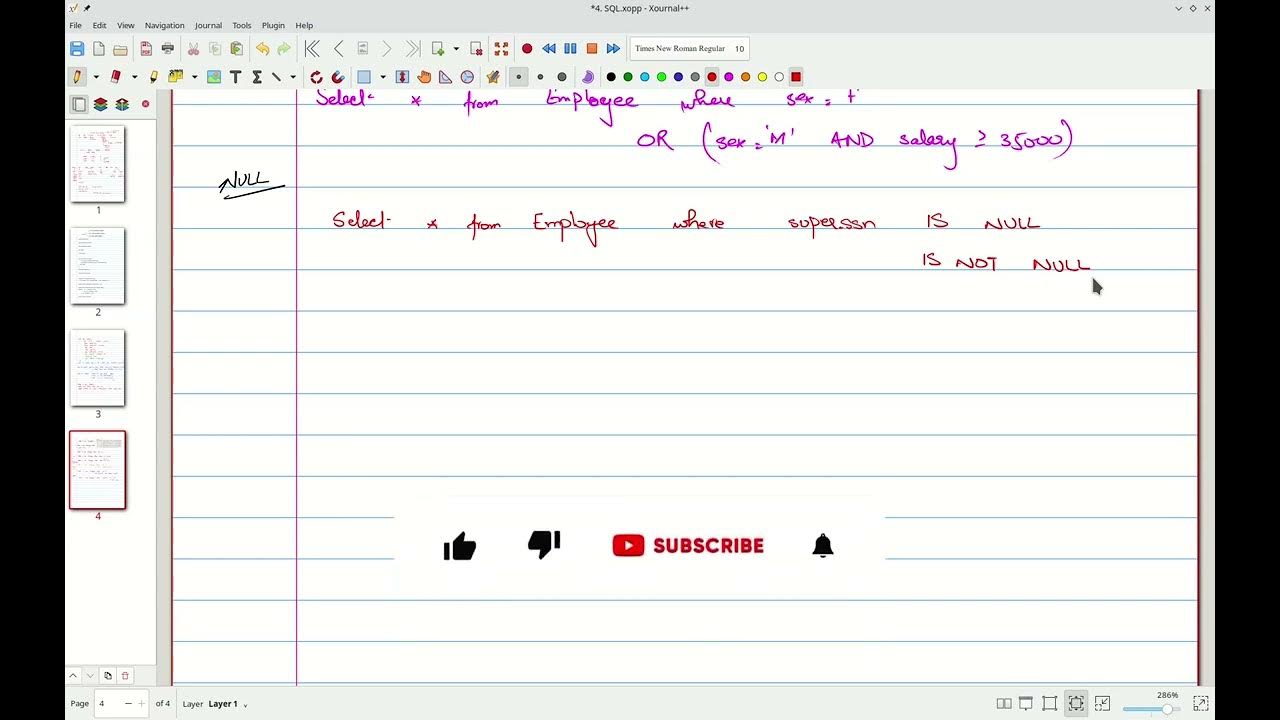 *4. SQL.xopp - Xournal++
File Edit View Navigation Journal Tools Plugin Help
Times New Roman Regular 10
Select * from Employee where sex =
OR (sex = 'M' AND salary ≥ 35000)
NULL
Select * from Employee where superssn IS NULL
IS NOT NULL
1
2
3
4
SUBSCRIBE
Page 4 of 4 Layer Layer 1 286%